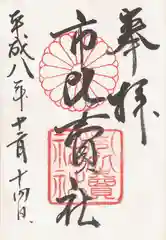 奉拝
市比賣社
平成八年十一月十四日